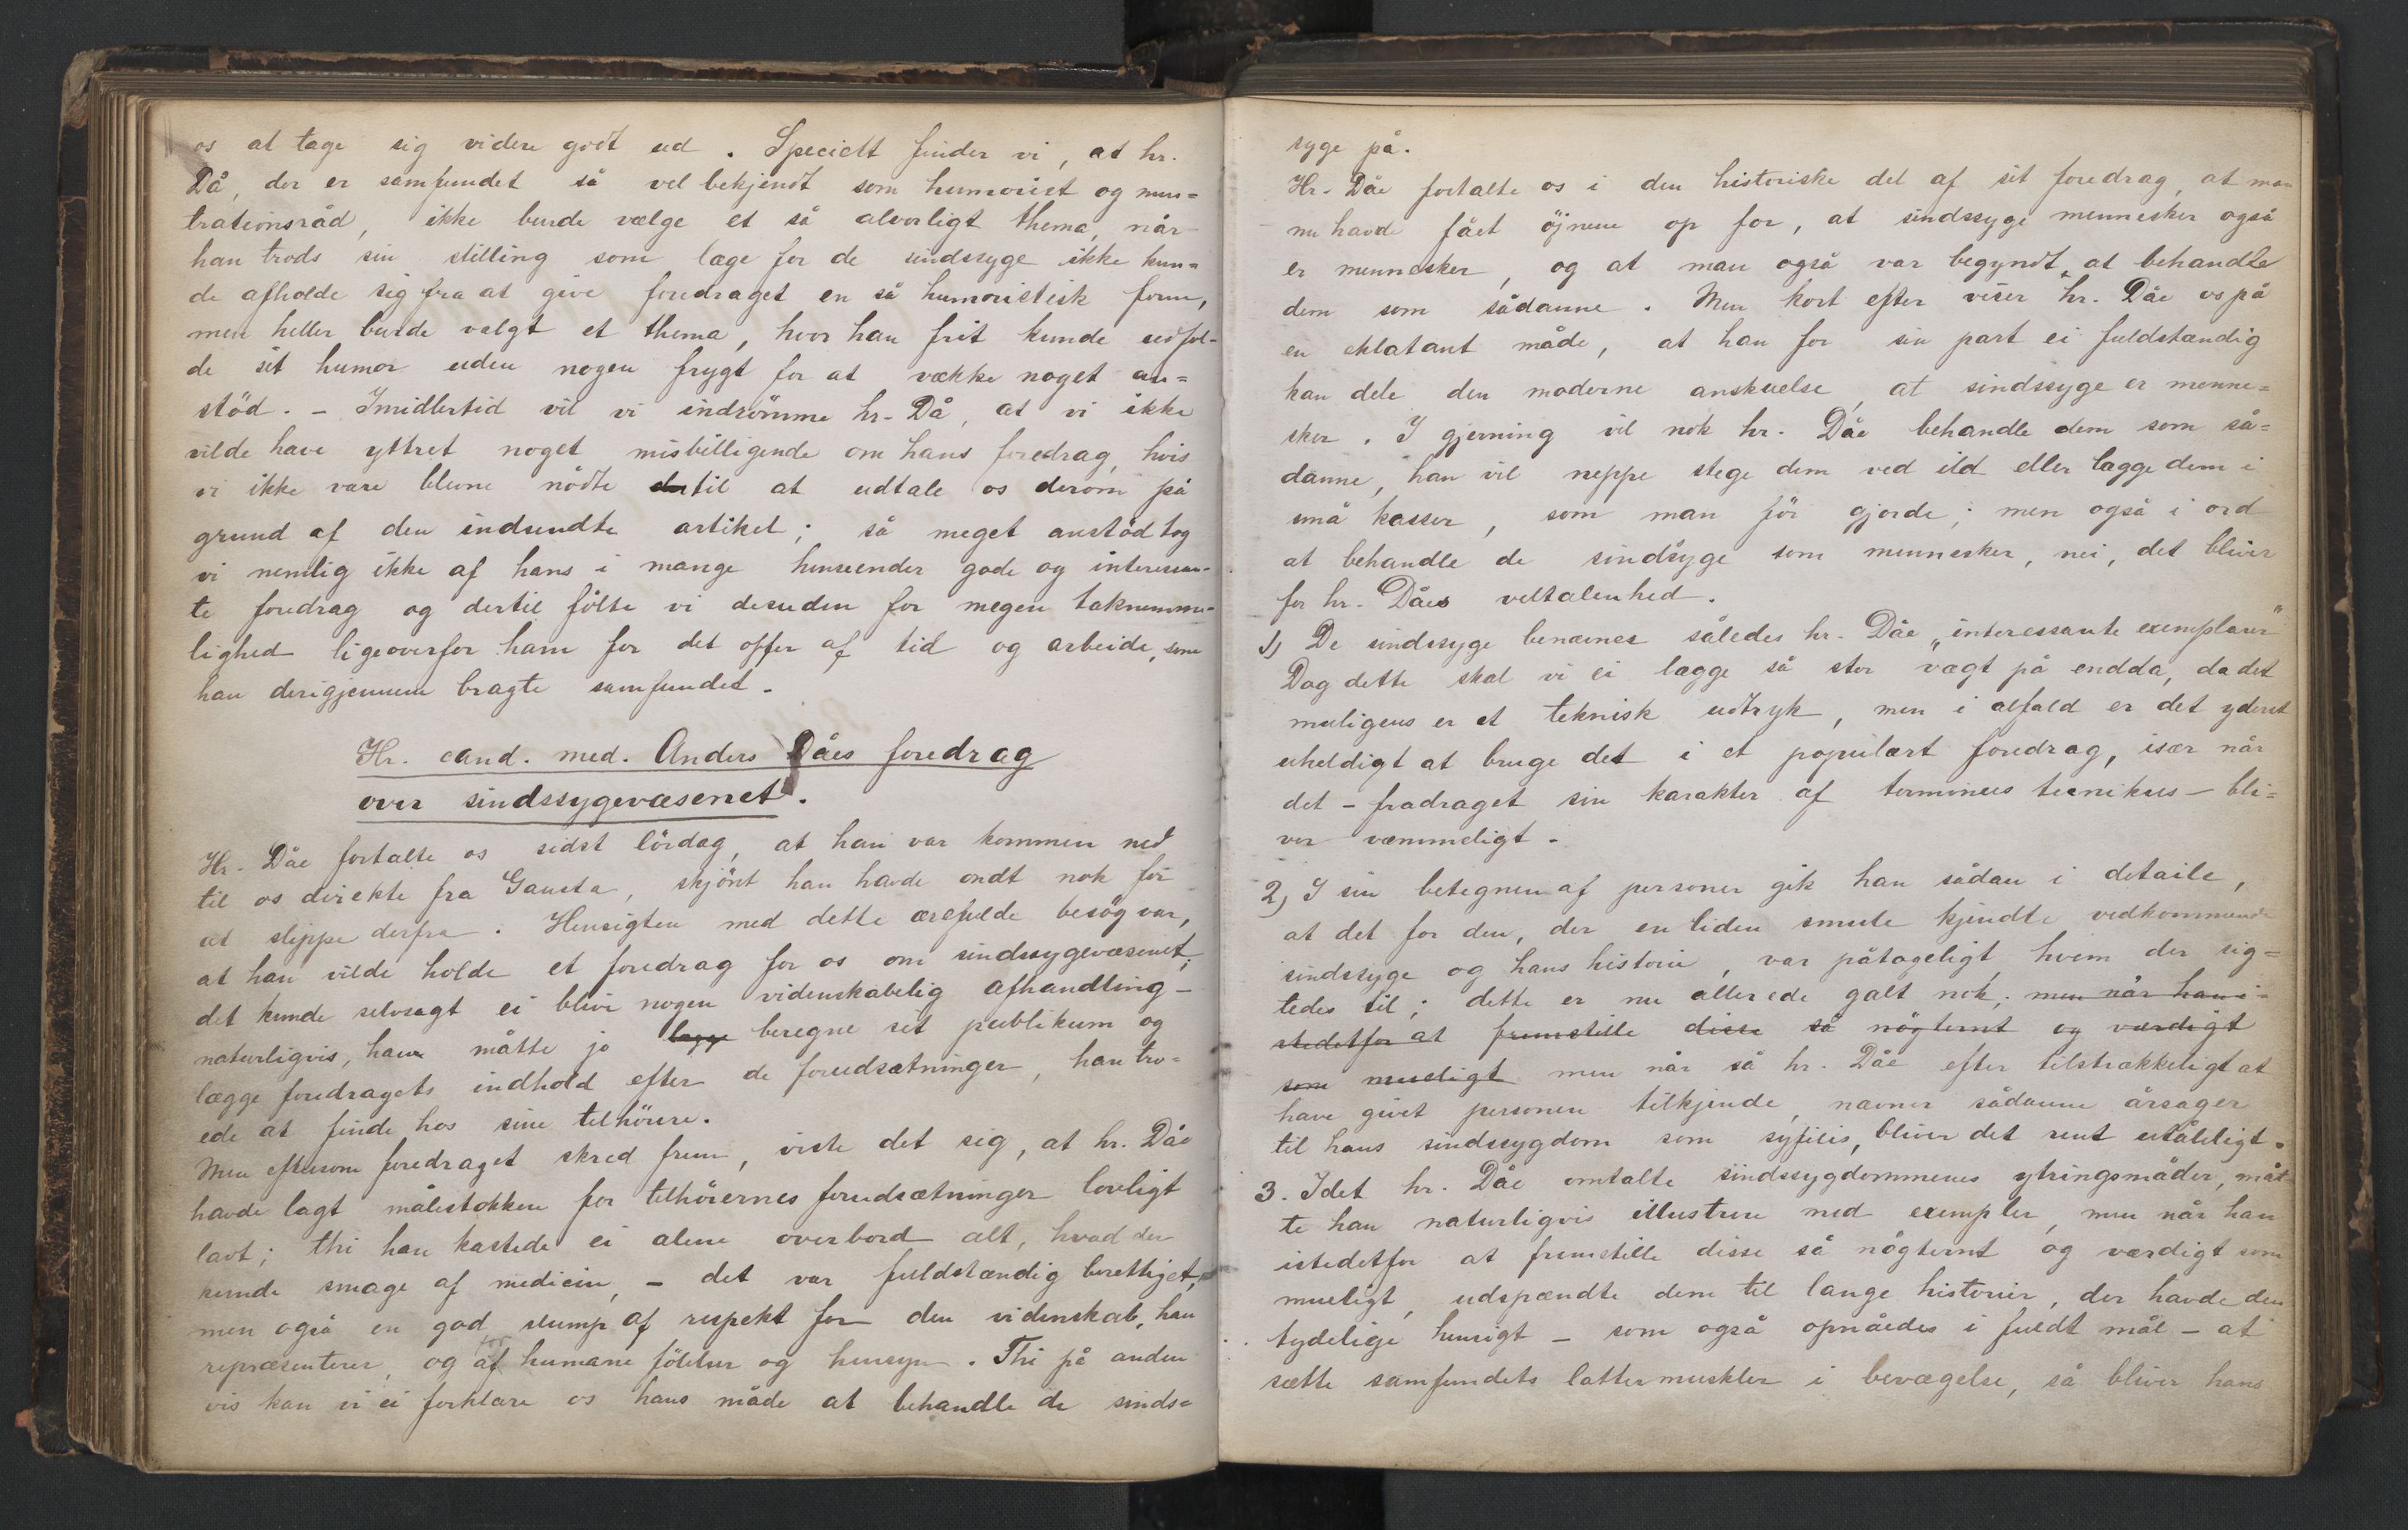 os at tage sig videre godt ud. Specielt finder vi, at hr.
Då, der er samfundet så vel bekjendt som humorist og mun=
trationsråd, ikke burde vælge et så alvorligt thema, når
han trods sin stilling som læge for de sindssyge ikke kun=
de afholde sig fra at give foredraget en så humoristisk form,
men heller burde valgt et thema, hvor han frit kunde udfol-
de sit humor uden nogen frygt for at vække noget an=
stöd. – Imidlertid vil vi indrömme hr. Då, at vi ikke
vilde have yttret noget misbilligende om hans foredrag, hvis
vi ikke vare blevne nödte til at udtale os derom på
grund af den indsendte artikel; så meget anstöd tog
vi nemlig ikke af hans i mange henseender gode og interessan-
te foredrag og dertil fölte vi desuden for megen taknemme-
lighed ligeoverfor ham for det offer af tid og arbeide, som
han derigjennem bragte samfundet.
Hr. cand. med. Anders Dåes foredrag
over sindssygevæsenet.
Hr. Dåe fortalte os sidst lördag, at han var kommen ned
til os direkte fra Gausta, skjönt han havde ondt nok for
at slippe derfra. Hensigten med dette ærefulde besög var,
at han vilde holde et foredrag for os om sindssygevæsenet;
det kunde selvsagt ei blive nogen videnskabelig afhandling –
naturligvis, han måtte jo lægge beregne sit publikum og
lægge foredragets indhold efter de forudsætninger, han tro=
ede at finde hos sine tilhörere.
Men eftersom foredraget skred frem, viste det sig, at hr. Dåe
havde lagt målestokken for tilhörernes forudsætninger loveligt
lavt; thi han kastede ei alene overbord alt, hvad der
kunde smage af medicin, – det var fuldstændig berettiget,
men også en god slump af respekt for den videnskab, han
repræsenterer, og af for humane fölelser og hensyn. Thi på anden
vis kan vi ei forklare os hans måde at behandle de sinds=
syge på.
Hr. Dåe fortalte os i den historiske del af sit foredrag, at man
nu havde fået öjnene op for, at sindssyge mennesker også
er mennesker, og at man også var begyndt at behandle
dem som sådanne. Men kort efter viser hr. Dåe os på
en eklatant måde, at han for sin part ei fuldstændig
kan dele den moderne anskuelse, at sindssyge er menne=
sker. I gjerning vil nok hr. Dåe behandle dem som så=
danne, han vil neppe stege dem ved ild eller lægge dem i
små kasser, som man för gjorde; men også i ord
at behandle de sindsyge som mennesker, nei, det bliver
for hr. Dåes veltalenhed.
1) De sindssyge benævnes således hr. Dåe „interessante exemplarer"
Dog dette skal vi ei lægge så stor vægt på endda, da det
muligens er et teknisk udtryk, men i alfald er det yderst
uheldigt at bruge det i et populært foredrag, især når
det – fradraget sin karakter af terminus teknikus – bli=
ver væmmeligt.
2) I sin betegnen af personer gik han sådan i detaile,
at det for den, der en liden smule kjendte vedkommende
sindssyge og hans historie, var påtageligt, hvem der sig=
tedes til; dette er nu allerede galt nok; men når han i=
stedetfor at fremstille disse så nögternt og værdigt
som mueligt men når så hr. Dåe efter tilstrækkeligt at
have givet personen tilkjende, nævner sådanne årsager
til hans sindssygdom som syfilis, bliver det rent utåleligt.
3. Idet hr. Dåe omtalte sindssygdommenes ytringsmåder, måt
te han naturligvis illustrere med exempler, men når han
istedetfor at fremstille disse så nögternt og værdigt som
mueligt, udspændte dem til lange historier, der havde den
tydelige hensigt – som også opnåedes i fuldt mål – at
sætte samfundets lattermuskler i bevægelse, så bliver hans